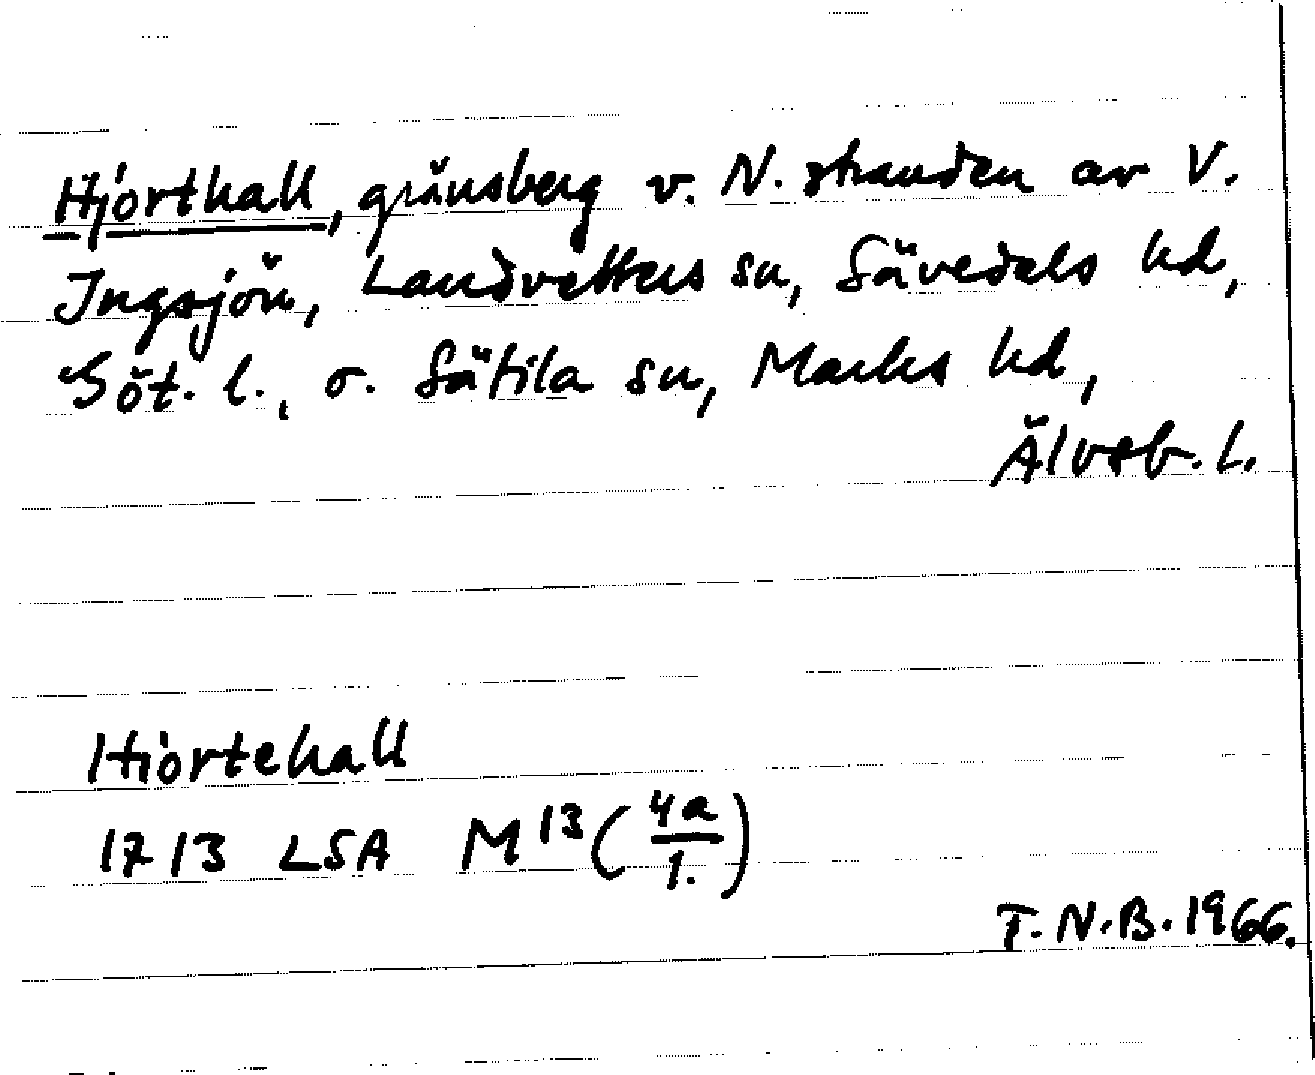 Hjorthall, gränsberg v. N. stranden av V.
Ingsjön, Landvetters sn, Sävedals hd,
Göt. l., o. Sätila sn, Marks hd,
Älvsb. l.
Hiortehall
1713 LSA M13 (4a/1.)
T.N.B. 1966.